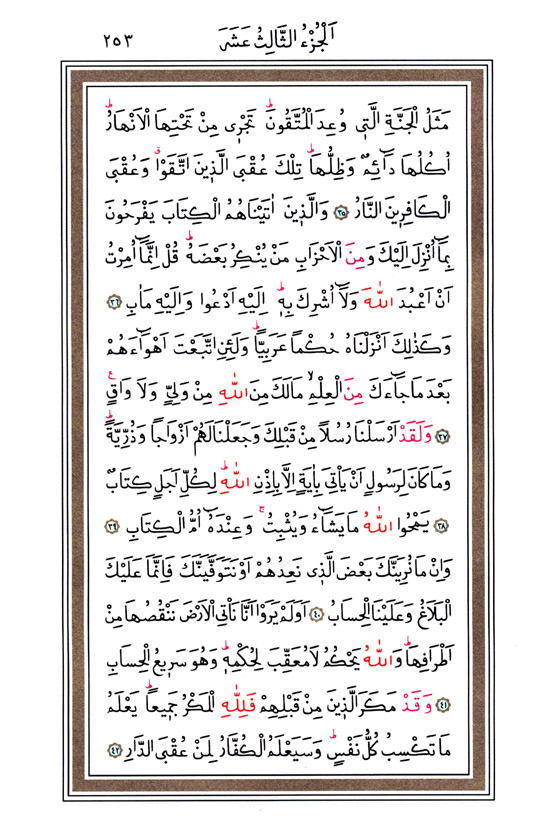 اَلْجُزْءُ الثَّالِثُ عَشَرَ ٢٥٣
مَثَلُ الْجَنَّةِ الَّتٖى وُعِدَ الْمُتَّقُونَؕ تَجْرٖى مِنْ تَحْتِهَا الْاَنْهَارُؕ
اُكُلُهَا دَٓائِمٌ وَظِلُّهَاؕ تِلْكَ عُقْبَى الَّذٖينَ اتَّقَوْاۗ وَعُقْبَى
الْكَافِرٖينَ النَّارُ ﴿٣٥﴾ وَالَّذٖينَ اٰتَيْنَاهُمُ الْكِتَابَ يَفْرَحُونَ
بِمَٓا اُنْزِلَ اِلَيْكَ وَمِنَ الْاَحْزَابِ مَنْ يُنْكِرُ بَعْضَهُؕ قُلْ اِنَّمَٓا اُمِرْتُ
اَنْ اَعْبُدَ اللّٰهَ وَلَٓا اُشْرِكَ بِهٖؕ اِلَيْهِ اَدْعُوا وَاِلَيْهِ مَاٰبِ ﴿٣٦﴾
وَكَذٰلِكَ اَنْزَلْنَاهُ حُكْمًا عَرَبِيًّاؕ وَلَئِنِ اتَّبَعْتَ اَهْوَٓاءَهُمْ
بَعْدَ مَا جَٓاءَكَ مِنَ الْعِلْمِۙ مَالَكَ مِنَ اللّٰهِ مِنْ وَلِىٍّ وَلَا وَاقٍࣖ
﴿٣٧﴾ وَلَقَدْ اَرْسَلْنَا رُسُلًا مِنْ قَبْلِكَ وَجَعَلْنَا لَهُمْ اَزْوَاجًا وَذُرِّيَّةًؕ
وَمَا كَانَ لِرَسُولٍ اَنْ يَأْتِىَ بِاٰيَةٍ اِلَّا بِاِذْنِ اللّٰهِؕ لِكُلِّ اَجَلٍ كِتَابٌ
﴿٣٨﴾ يَمْحُوا اللّٰهُ مَا يَشَٓاءُ وَيُثْبِتُۚ وَعِنْدَهُٓ اُمُّ الْكِتَابِ ﴿٣٩﴾
وَاِنْ مَا نُرِيَنَّكَ بَعْضَ الَّذٖى نَعِدُهُمْ اَوْ نَتَوَفَّيَنَّكَ فَاِنَّمَا عَلَيْكَ
الْبَلَاغُ وَعَلَيْنَا الْحِسَابُ ﴿٤٠﴾ اَوَلَمْ يَرَوْا اَنَّا نَأْتِى الْاَرْضَ نَنْقُصُهَا مِنْ
اَطْرَافِهَاؕ وَاللّٰهُ يَحْكُمُ لَا مُعَقِّبَ لِحُكْمِهٖؕ وَهُوَ سَرٖيعُ الْحِسَابِ
﴿٤١﴾ وَقَدْ مَكَرَ الَّذٖينَ مِنْ قَبْلِهِمْ فَلِلّٰهِ الْمَكْرُ جَمٖيعًاؕ يَعْلَمُ
مَا تَكْسِبُ كُلُّ نَفْسٍؕ وَسَيَعْلَمُ الْكُفَّارُ لِمَنْ عُقْبَى الدَّارِ ﴿٤٢﴾